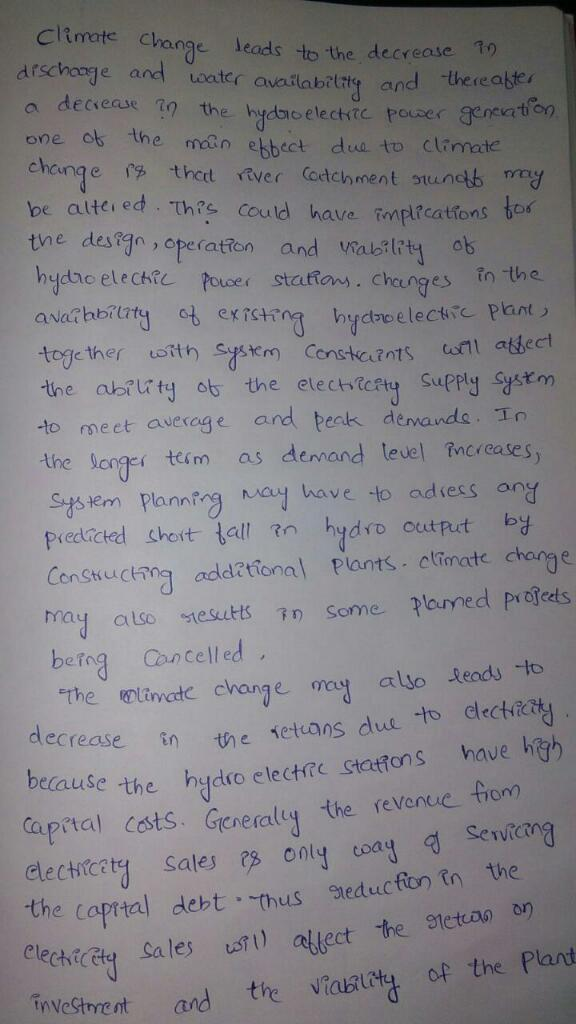 Climate change leads to the decrease in
discharge and water availability and thereafter
a decrease in the hydroelectric power generation.
one of the main effect due to climate
change is that river catchment runoff may
be altered. This could have implications for
the design, operation and viability of
hydroelectric power stations. changes in the
availability of existing hydroelectric plant,
together with system constraints will affect
the ability of the electricity supply system
to meet average and peak demands. In
the longer term as demand level increases,
system planning may have to adress any
predicted short fall in hydro output by
constructing additional plants. climate change
may also results in some planned projects
being cancelled.
The climate change may also leads to
decrease in the returns due to electricity.
because the hydroelectric stations have high
capital costs. Generally the revenue from
electricity sales is only way of servicing
the capital debt. Thus reduction in the
electricity sales will affect the return on
investment and the viability of the plant